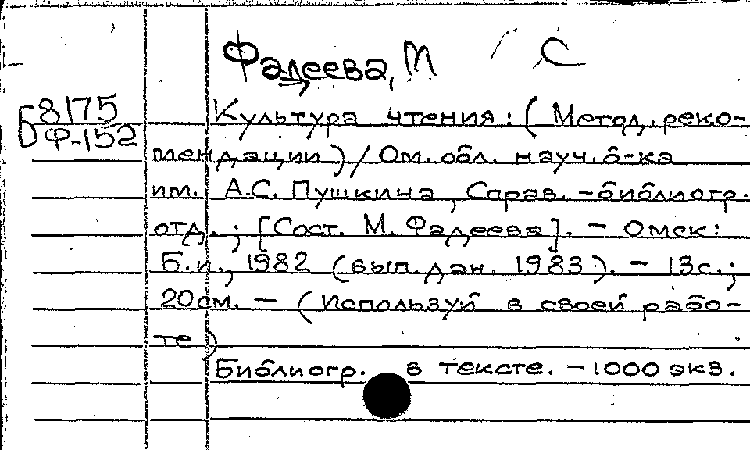 Фадеева, М С
Б 8175
Ф-152
Культура чтения: (Метод. реко-
мендации) / Ом. обл. науч. б-ка
им. А.С. Пушкина, Справ.-библиогр.
отд.; [Сост. М. Фадеева]. - Омск:
Б.и., 1982 (вып. дан. 1983). - 13с.;
20см. - (Используй в своей рабо-
те)
Библиогр. в тексте. - 1000 экз.